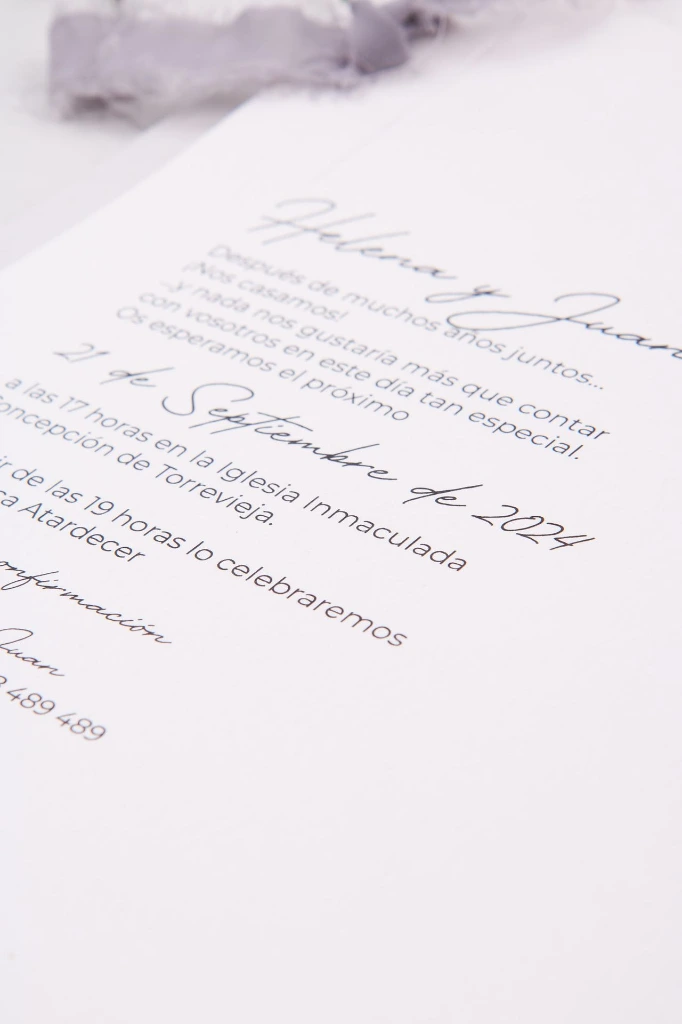 Helena y Juan
Después de muchos años juntos...
¡Nos casamos!
...y nada nos gustaría más que contar
con vosotros en este día tan especial.
Os esperamos el próximo
21 de Septiembre de 2024
a las 17 horas en la Iglesia Inmaculada
Concepción de Torrevieja.
de las 19 horas lo celebraremos
Atardecer
onfirmación
Juan
489 489